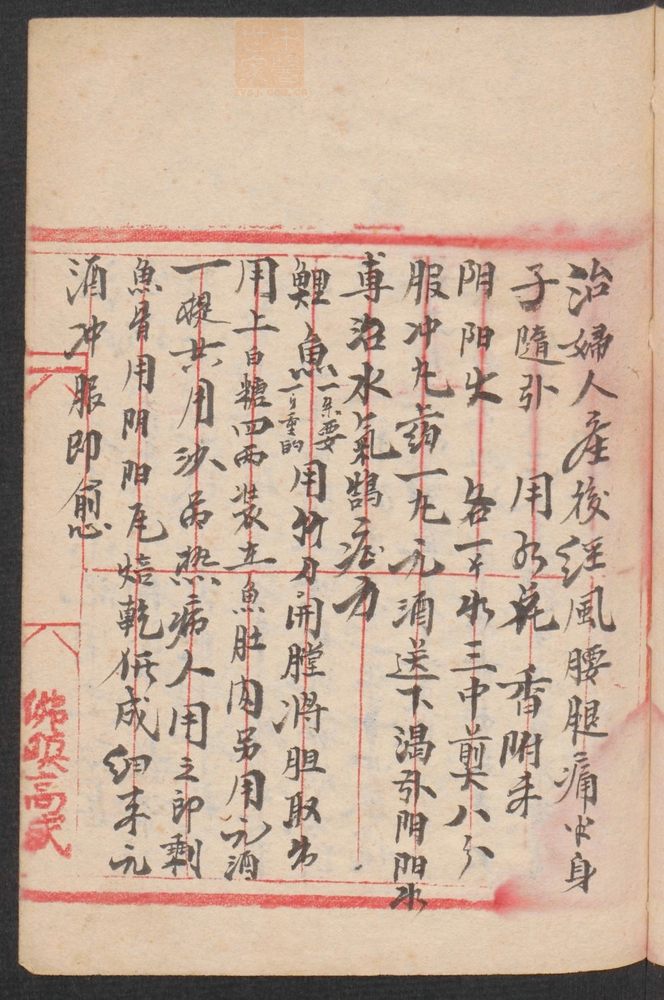 治婦人產後經風腰腿痛少身
子隨引 用水花 香附末
阴阳火 各一斤水三中煎八分
服冲九药一九元酒送下渴引阴阳水
专治水氣鹄症方
鯉魚一条要一斤重的用竹刀開膛将胆取出
用上白糖四两装在魚肚内另用元酒
一提共用沙吊熬病人用之即剩
魚骨用阴阳瓦焙乾研成细末元
酒冲服即愈
六